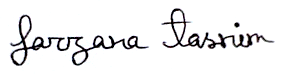 farzana tasnim